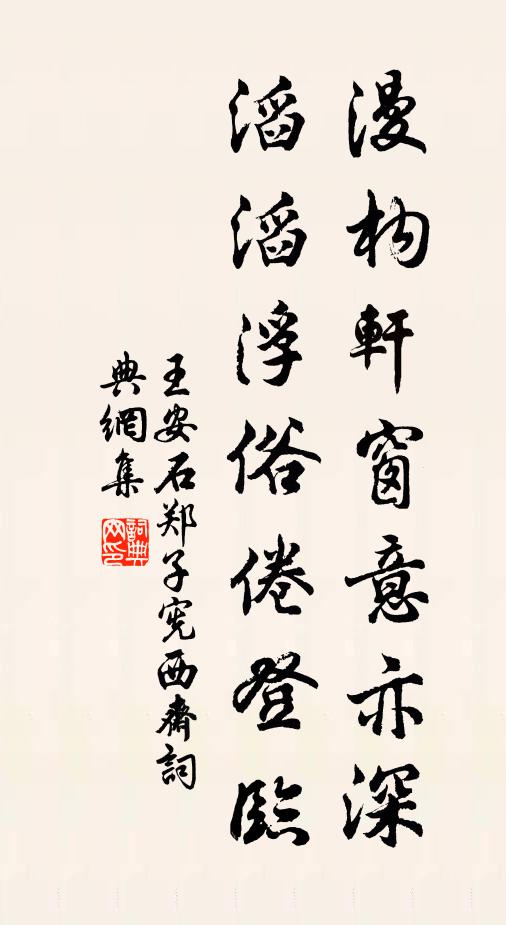 漫构軒窗意亦深
滔滔浮俗倦登臨
王安石郑子宪西齋詞
典網集
詞典网印